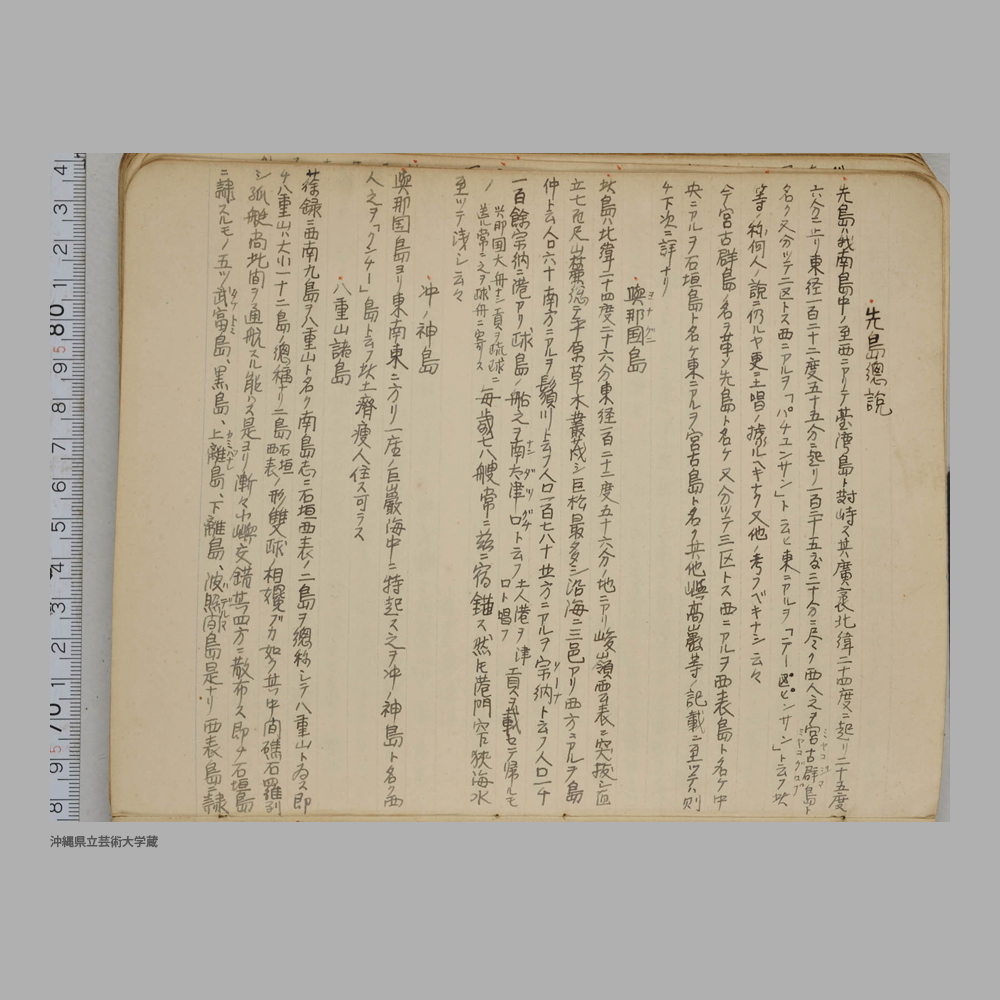 先島總說
先島ハ我南島中ノ至西ニアリテ臺湾島ト対峙ス其廣袤北緯二十四度ニ起リ二十五度
六分ニ止リ東径一百二十二度五十五分ニ起リ一百二十五度三十分ニ尽ク西人之ヲ宮古群島ト
ミヤコジマ
ミヤコグロブ
名ク又分ツテ二区トス西ニアルヲ「パチユンサン」ト云ヒ東ニアルヲ「テー ピンサン」ト云フ此
等ノ称何人ノ說ニ仍ルヤ更ニ土唱ノ據ルヘキナク又他ノ考フベキナシ云々
今宮古群島ノ名ヲ革メ先島ト名ケ又分ツテ三区トス西ニアルヲ西表島ト名ケ中
央ニアルヲ石垣島ト名ケ東ニアルヲ宮古島ト名ク其他嶼高巖等ノ記載ニ至ツテハ則
チ下次ニ詳ナリ
與那国島
ヨナグニ
此島ハ北緯二十四度二十六分東径一百二十二度五十六分ノ地ニアリ峻嶺西表ニ突抜シ直
立七百尺山麓總テ平原草木叢茂シ巨松最多シ沿海ニ三邑アリ西方ニアルヲ島
仲ト云人口六十南方ニアルヲ鬚川ト云フ人口一百七八十北方ニアルヲ宗納ト云フ人口一千
ソーナ
一百餘宗納ニ港アリ球島ノ船之ヲ南太津口ト云フ土人港ヲ津口ト唱フ貢ヲ載セテ帰ルモ
ナンダツグチ
ノ與那国大舟ナシ貢ヲ琉球ニ進ル常ニ之ヲ球舟ニ寄ス毎歳七八艘常ニ茲ニ宿錨ス然氏港門窄狭海水
至ツテ浅シ云々
沖ノ神島
與那国島ヨリ東南東ニ方リ一座ノ巨巖海中ニ特起ス之ヲ沖ノ神島ト名ク西
人之ヲ「クンチー」島ト云フ此土瘠瘦人住ス可ラス
八重山諸島
葆録ニ西南九島ヲ八重山ト名ク南島志ニ石垣西表ノ二島ヲ總称シテ八重山ト為ス即
チ八重山ハ大小一十二島ノ總稱ナリ二島石垣西表ノ形雙球ノ相嬲ブカ如ク其中间礁石羅列
シ孤艇尚此间ヲ通航スル能ハス是ヨリ漸々小嶼交錯其四方ニ散布ス即チ石垣島
ニ隷スルモノ五ツ武富島、黒島、上離島、下離島、波照间島是ナリ西表島ニ隷
タケトミ
カミバナレ
沖縄県立芸術大学蔵